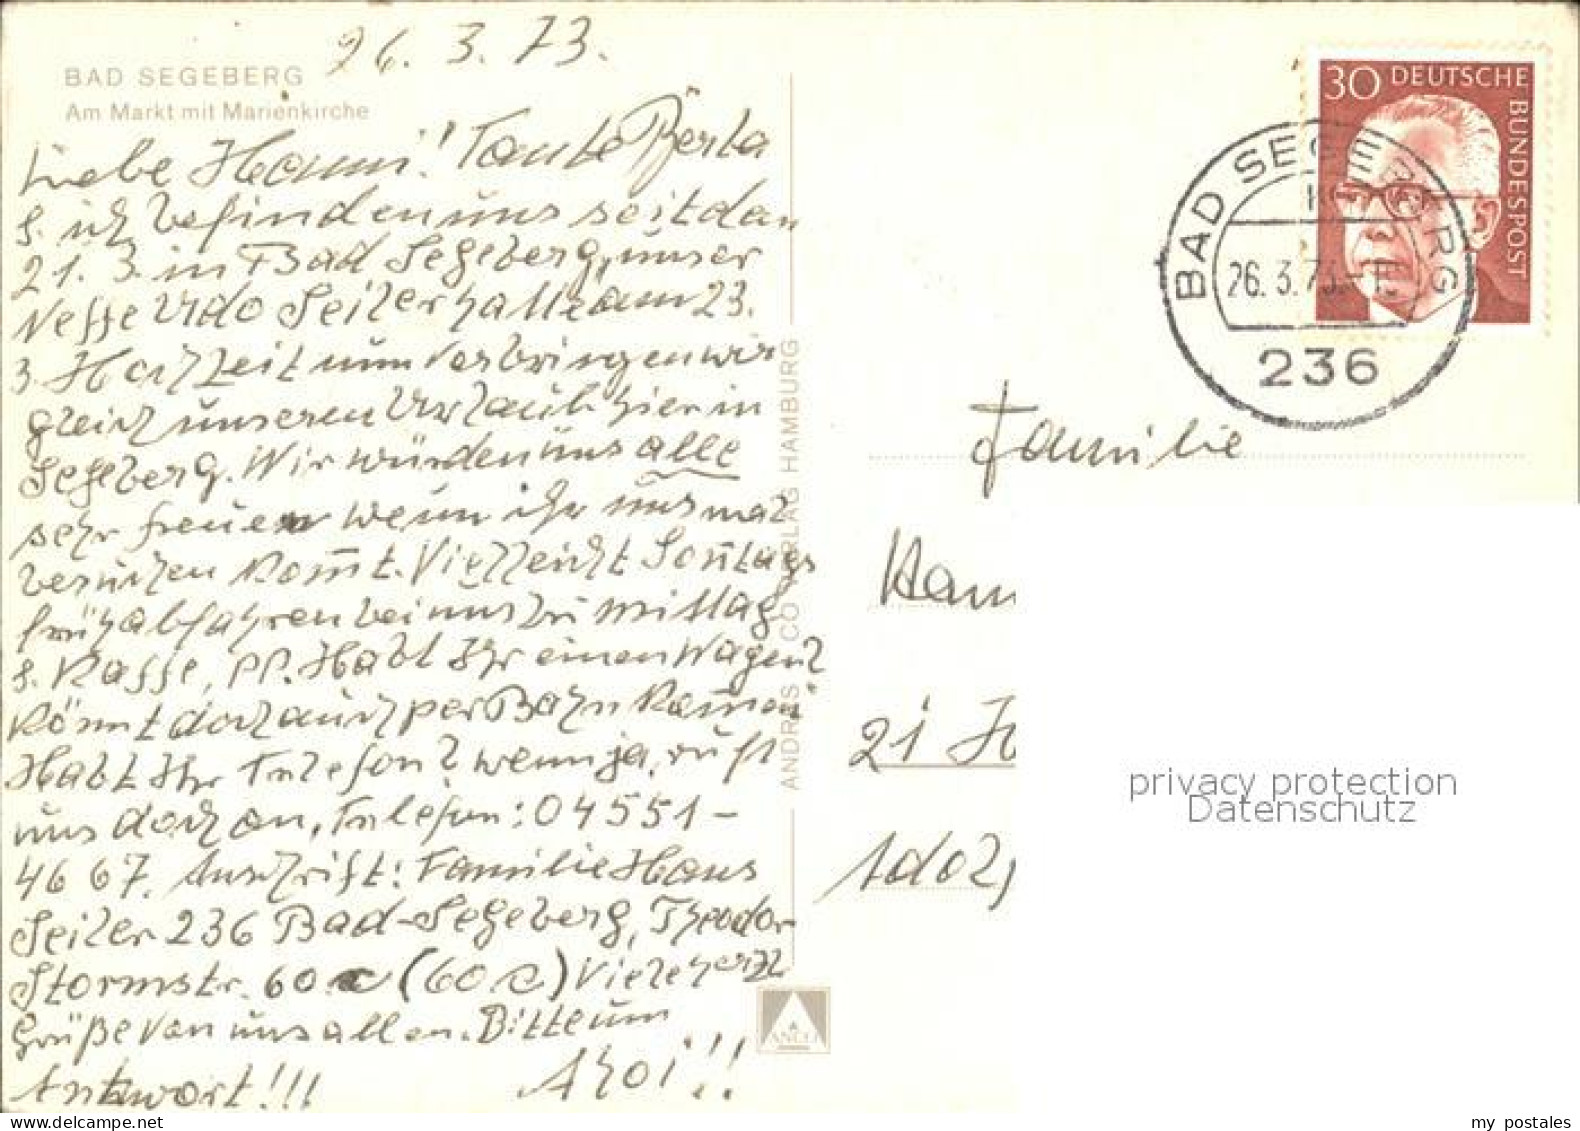 26.3.73.
BAD SEGEBERG
Am Markt mit Marienkirche
Liebe Hanni! Tante Berta
&. ich befinden uns seit dan
21.3. in Bad Segeberg, unser
Neffe Udo Seiler hatte am 23.
3. Hochzeit nun verbringen wir
gleich unseren Urlaub hier in
Segeberg. Wir würden uns alle
sehr freuen wenn ihr uns mal
besuchen kom̅t. Vielleicht Son̅tags
früh abfahren bei uns zu Mittag
&. Kaffe, pp. Habt Ihr einen Wagen?
Könnt doch auch per Bahn kom̅en
Habt Ihr Telefon? wenn ja, ruft
uns doch an, Telefon: 04551-
4667. Anschrift: Familie Hans
Seiler 236 Bad-Segeberg, Theodor-
Stormstr. 60 c (60 c) Viele herzl
Grüße von uns allen. Bitte um
Antwort!!! Ahoi!!
ANDRES CO VERLAG HAMBURG
ANCO
30 DEUTSCHE
BUNDESPOST
BAD SEGEBERG
26.3.73
236
Familie
Han
21 H
Adolf
privacy protection
Datenschutz
www.delcampe.net
my_postales